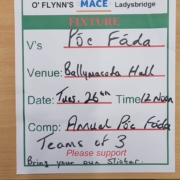 O' FLYNN'S MACE Ladysbridge
FIXTURE
V's Póc Fáda
Venue: Ballymacoda Hall
Date: Tues. 26th Time 12 Noon
Comp: Annual Póc Fáda
Teams of 3
Please support
Bring your own sliotar.